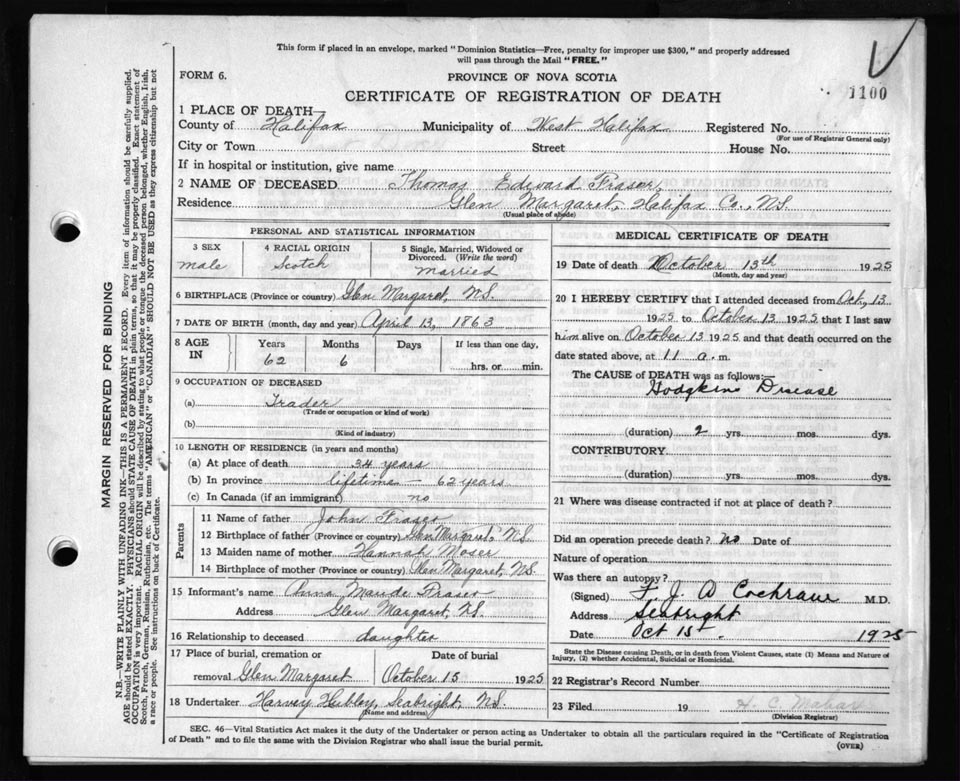 This form if placed in an envelope, marked "Dominion Statistics—Free, penalty for improper use $300," and properly addressed
will pass through the Mail "FREE."
FORM 6.
PROVINCE OF NOVA SCOTIA
CERTIFICATE OF REGISTRATION OF DEATH
1100
1 PLACE OF DEATH—
County of Halifax Municipality of West Halifax Registered No.
(For use of Registrar General only)
City or Town Street House No.
If in hospital or institution, give name
2 NAME OF DECEASED Thomas Edward Fraser
Residence Glen Margaret, Halifax Co., N.S.
(Usual place of abode)
PERSONAL AND STATISTICAL INFORMATION
3 SEX 4 RACIAL ORIGIN 5 Single, Married, Widowed or
Divorced. (Write the word)
male Scotch married
6 BIRTHPLACE (Province or country) Glen Margaret, N.S.
7 DATE OF BIRTH (month, day and year) April 13, 1863
8 AGE IN Years Months Days If less than one day,
62 6 hrs. or min.
9 OCCUPATION OF DECEASED
(a) Trader
(Trade or occupation or kind of work)
(b)
(Kind of industry)
10 LENGTH OF RESIDENCE (in years and months)
(a) At place of death 34 years
(b) In province lifetime — 62 years
(c) In Canada (if an immigrant) no
Parents
11 Name of father John Fraser
12 Birthplace of father (Province or country) Glen Margaret, N.S.
13 Maiden name of mother Hannah Moser
14 Birthplace of mother (Province or country) Glen Margaret, N.S.
15 Informant's name Anna Maude Fraser
Address Glen Margaret, N.S.
16 Relationship to deceased daughter
17 Place of burial, cremation or Date of burial
removal Glen Margaret October 15 1925
18 Undertaker Harvey Hubley, Seabright, N.S.
(Name and address)
MEDICAL CERTIFICATE OF DEATH
19 Date of death October 13th 1925
(Month, day and year)
20 I HEREBY CERTIFY that I attended deceased from Oct, 13
1925 to October 13 1925 that I last saw
him alive on October 13 1925 and that death occurred on the
date stated above, at 11 a.m.
The CAUSE of DEATH was as follows:—
Hodgkins Disease
(duration) 2 yrs. mos. dys.
CONTRIBUTORY.
(duration) yrs. mos. dys.
21 Where was disease contracted if not at place of death?
Did an operation precede death? no Date of
Nature of operation
Was there an autopsy?
(Signed) F. J. A Cochrane M.D.
Address Seabright
Date Oct 15th. 1925
State the Disease causing Death, or in death from Violent Causes, state (1) Means and Nature of
Injury, (2) whether Accidental, Suicidal or Homicidal.
22 Registrar's Record Number
23 Filed 19 H. C.
(Division Registrar)
SEC. 46—Vital Statistics Act makes it the duty of the Undertaker or person acting as Undertaker to obtain all the particulars required in the "Certificate of Registration
of Death" and to file the same with the Division Registrar who shall issue the burial permit.
(OVER)
MARGIN RESERVED FOR BINDING
N.B.—WRITE PLAINLY WITH UNFADING INK—THIS IS A PERMANENT RECORD. Every item of information should be carefully supplied.
AGE should be stated EXACTLY. PHYSICIANS should STATE CAUSE OF DEATH in plain terms, so that it may be properly classified. Exact statement of
OCCUPATION is very important. RACIAL ORIGIN will be described by stating to what people or tongue the deceased person belonged, whether English, Irish,
Scotch, French, German, Russian, Ruthenian, etc. The terms "AMERICAN" or "CANADIAN" SHOULD NOT BE USED as they express citizenship but not
a race or people. See instructions on back of Certificate.